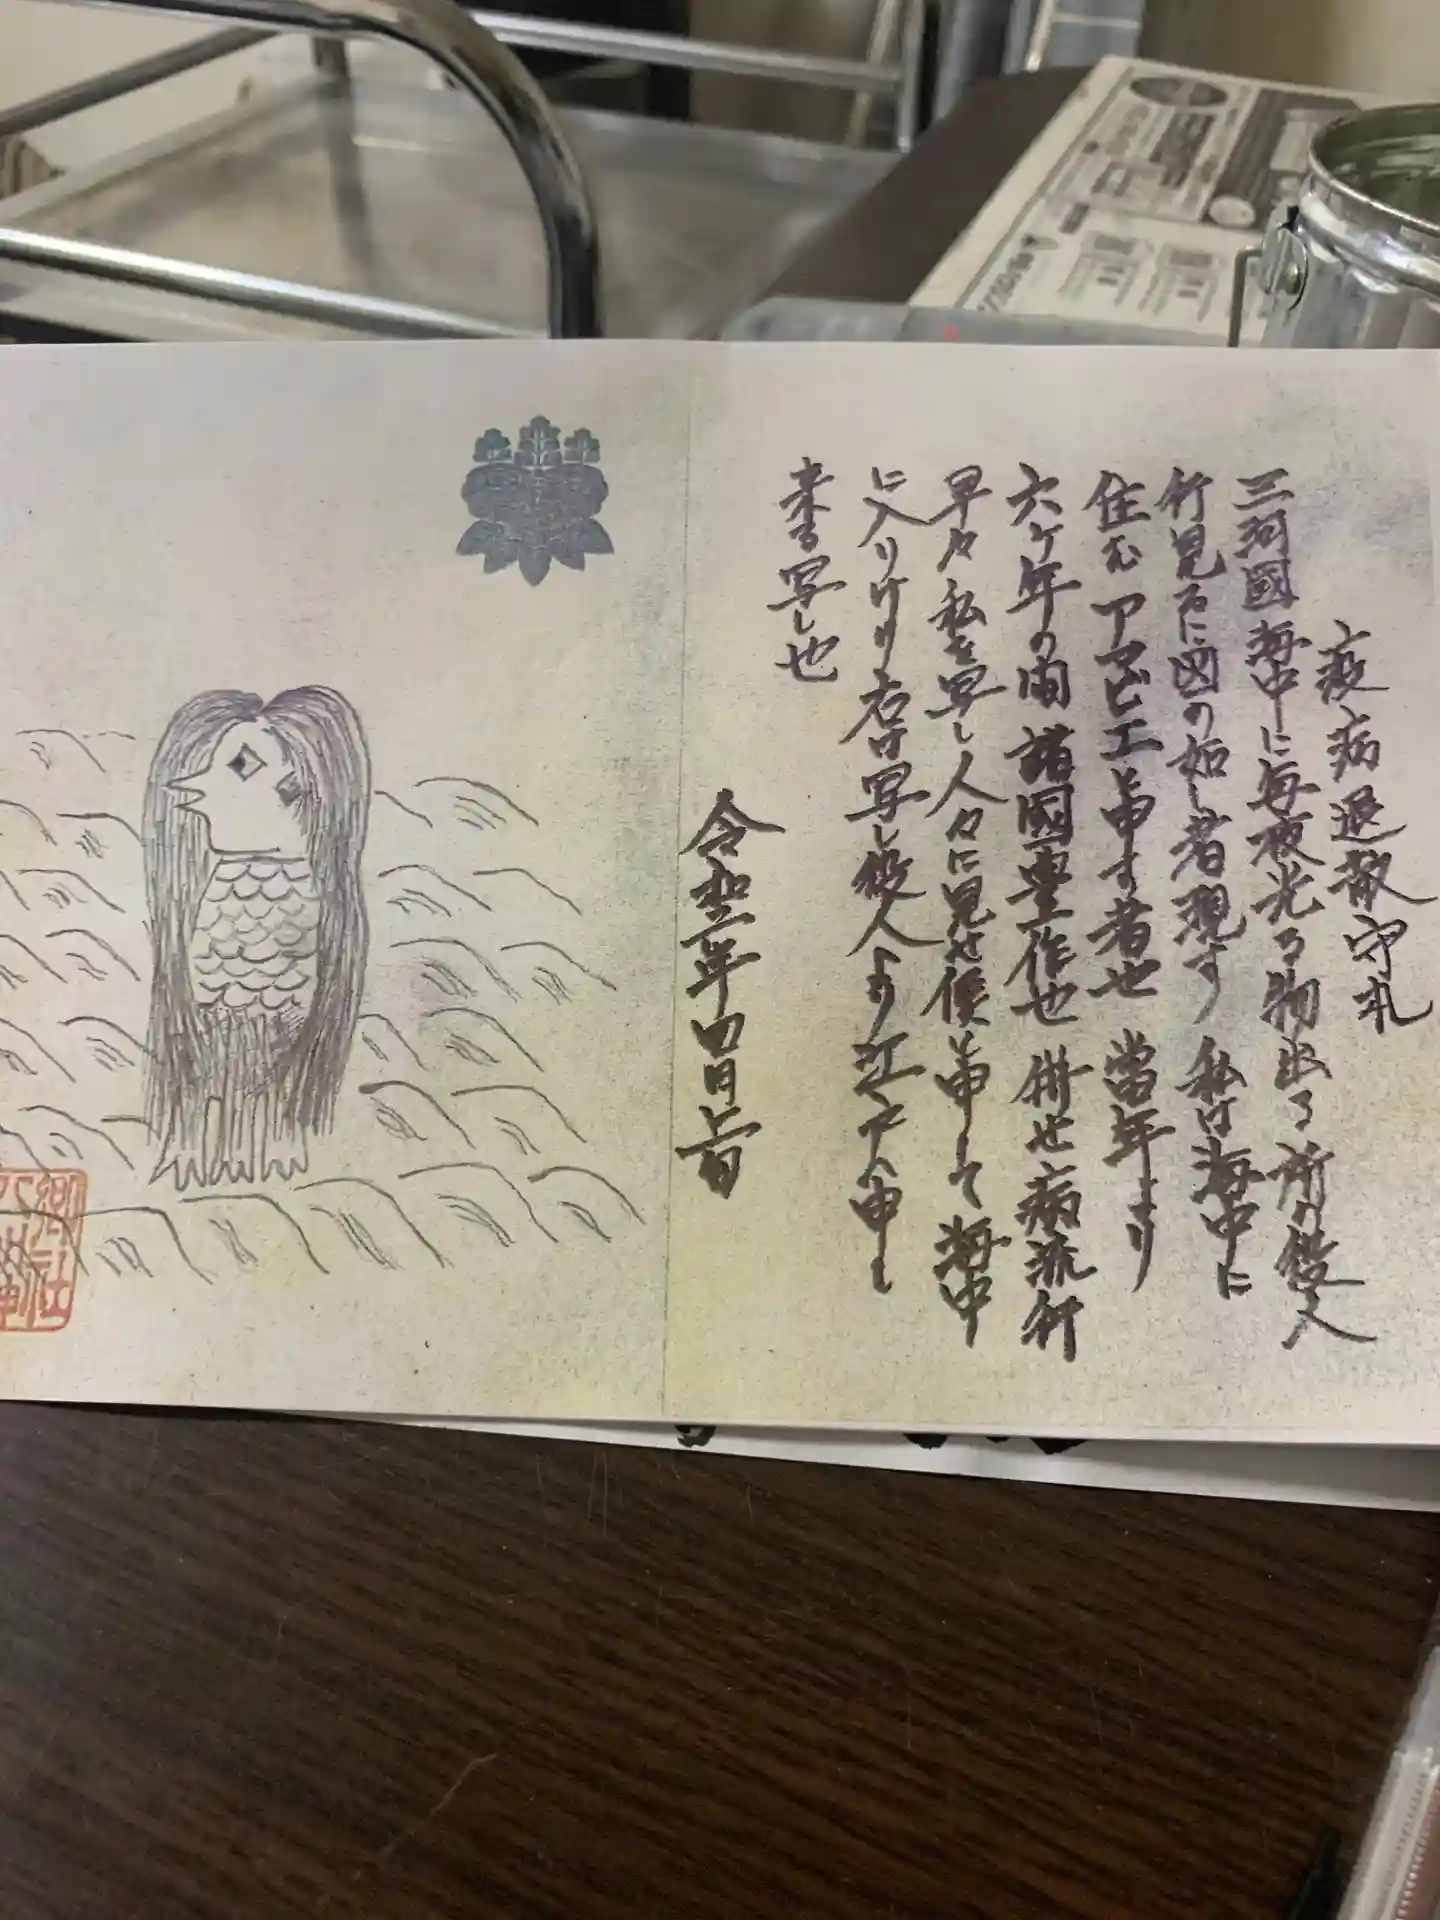 疫病退散守札
三河國海中に毎夜光る物出る所の役人
行見るに図の如し者現す 私は海中に
住むアマビエと申す者也 當年より
六ケ年の間諸國豊作也 併せ病流行
早々私を早し人々に見せ候と申して海中
に入りけり 右は写し役人より江戸へ申し
来る写し也
令和二年四月上旬
郷社